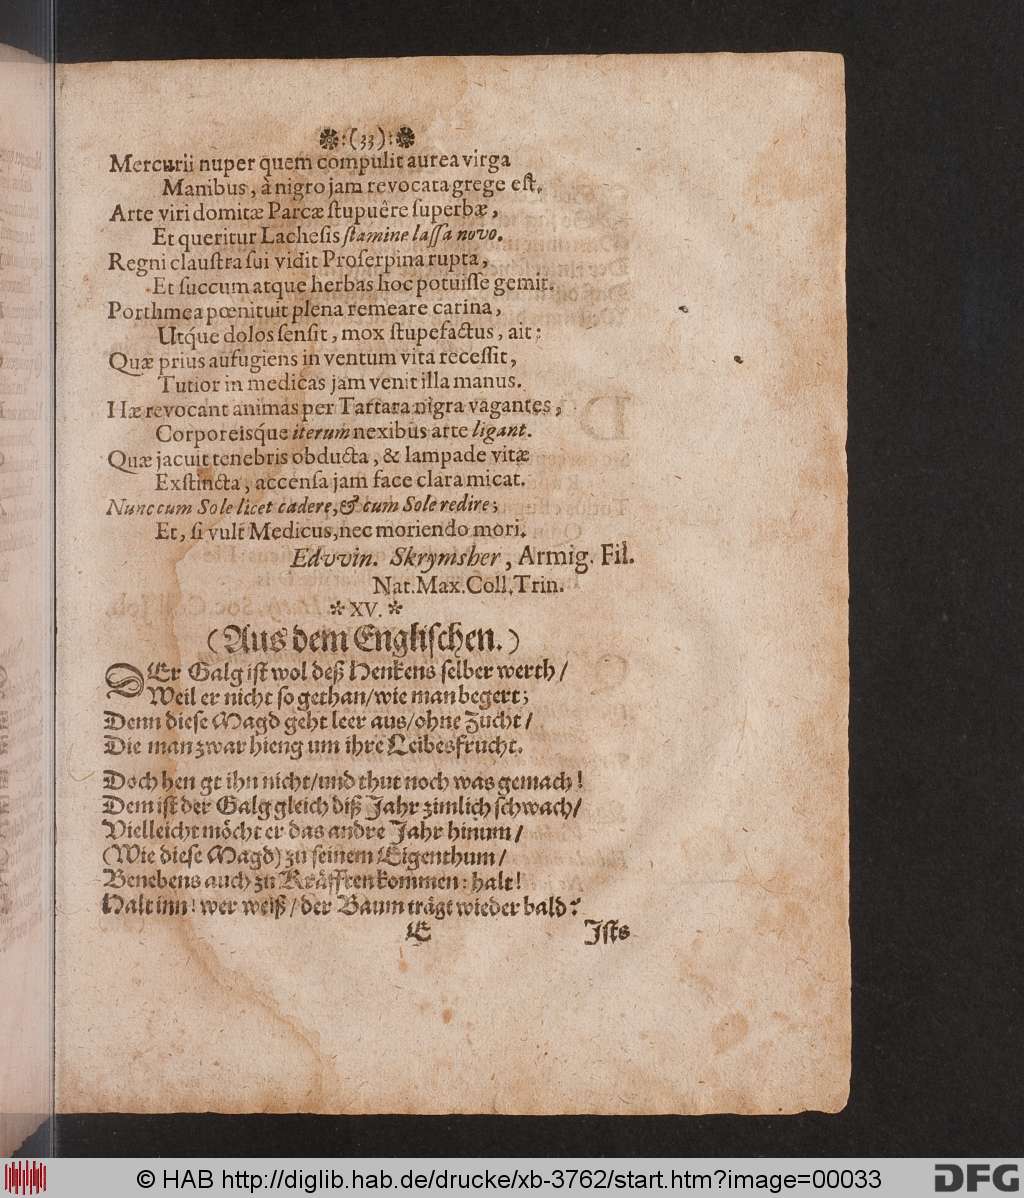 ✽:(33):✽
Mercurii nuper quem compulit aurea virga
Manibus, à nigro jam revocata grege eſt.
Arte viri domitæ Parcæ ſtupuêre ſuperbæ,
Et queritur Lacheſis ſtamine laſſa novo.
Regni clauſtra ſui vidit Proſerpina rupta,
Et ſuccum atque herbas hoc potuiſſe gemit.
Porthmea pœnituit plena remeare carina,
Utq́ue dolos ſenſit, mox ſtupefactus, ait:
Quæ prius aufugiens in ventum vita receſſit,
Tutior in medicas jam venit illa manus.
Hæ revocant animas per Tartara nigra vagantes,
Corporeisq́ue iterum nexibus arte ligant.
Quæ jacuit tenebris obducta, & lampade vitæ
Exſtincta, accenſa jam face clara micat.
Nunc cum Sole licet cadere, & cum Sole redire;
Et, ſi vult Medicus, nec moriendo mori.
Edvvin. Skrymsher, Armig. Fil.
Nat. Max. Coll. Trin.
✽ XV. ✽
(Aus dem Engliſchen.)
DEr Galg iſt wol deß Henkens ſelber werth/
Weil er nicht ſo gethan/wie man begert;
Denn dieſe Magd geht leer aus/ohne Zucht/
Die man zwar hieng um ihre Leibesfrucht.
Doch hen gt ihn nicht/und thut noch was gemach!
Dem iſt der Galg gleich diß Jahr zimlich ſchwach/
Vielleicht möcht er das andre Jahr hinum/
(Wie dieſe Magd) zu ſeinem Eigenthum/
Benebens auch zu Kräfften kommen: halt!
Halt inn! wer weiß/der Baum trägt wieder bald?
E Iſts
© HAB http://diglib.hab.de/drucke/xb-3762/start.htm?image=00033
DFG